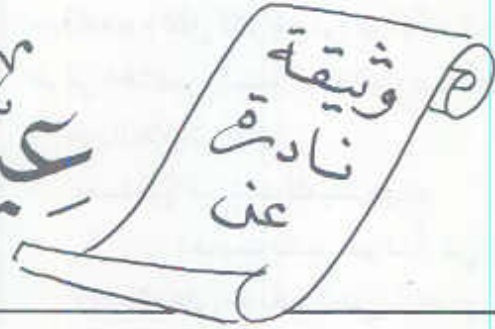 وثيقة
نادرة
عن